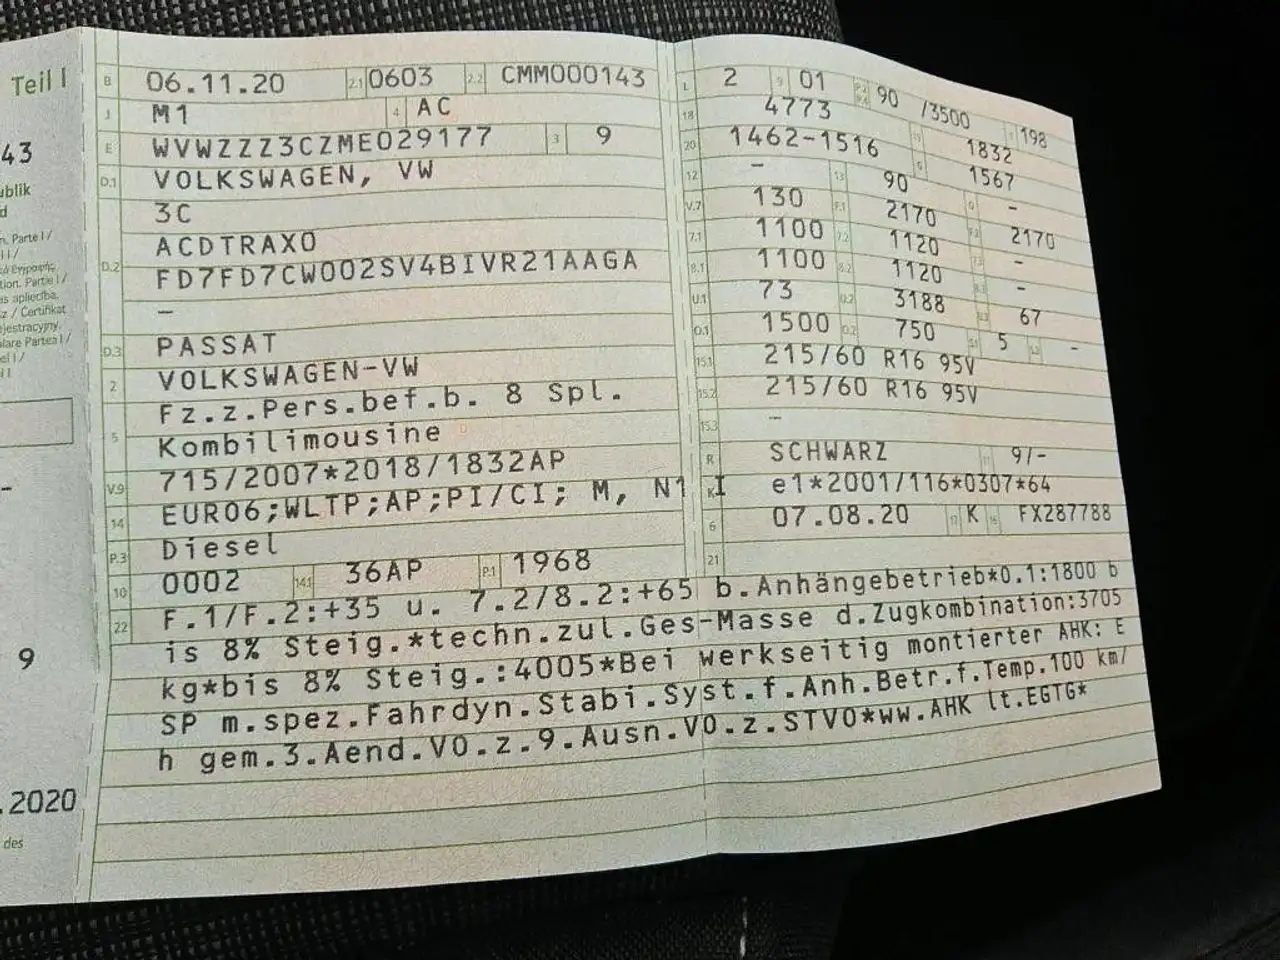 Teil I
43
ublik
d
n. Parte I /
I I /
tion. Partie I /
as apliecība.
z / Certifikat
rejestracyjny.
lare Partea I /
el I /
I I
-
9
.2020
des
B 06.11.20 2.1 0603 2.2 CMM000143
J M1 4 AC
E WVWZZZ3CZME029177 3 9
D.1 VOLKSWAGEN, VW
3C
D.2 ACDTRAX0
FD7FD7CW002SV4BIVR21AAGA
-
D.3 PASSAT
2 VOLKSWAGEN-VW
Fz.z.Pers.bef.b. 8 Spl.
5 Kombilimousine
V.9 715/2007*2018/1832AP
14 EURO6;WLTP;AP;PI/CI; M, N1 I
P.3 Diesel
10 0002 14.1 36AP P.1 1968
L 2 9 01 P.2 P.4 90 /3500 T 198
18 4773 19 1832
20 1462-1516 G 1567
12 - 13 90 Q -
V.7 130 F.1 2170 F.2 2170
7.1 1100 7.2 1120 7.3 -
8.1 1100 8.2 1120 8.3 -
U.1 73 U.2 3188 U.3 67
O.1 1500 O.2 750 S.1 5 S.2 -
15.1 215/60 R16 95V
15.2 215/60 R16 95V
15.3 -
R SCHWARZ 11 9/-
K e1*2001/116*0307*64
6 07.08.20 17 K 16 FX287788
21
22 F.1/F.2:+35 u. 7.2/8.2:+65 b.Anhängebetrieb*0.1:1800 b
is 8% Steig.*techn.zul.Ges-Masse d.Zugkombination:3705
kg*bis 8% Steig.:4005*Bei werkseitig montierter AHK: E
SP m.spez.Fahrdyn.Stabi.Syst.f.Anh.Betr.f.Temp.100 km/
h gem.3.Aend.VO.z.9.Ausn.VO.z.STVO*ww.AHK lt.EGTG*